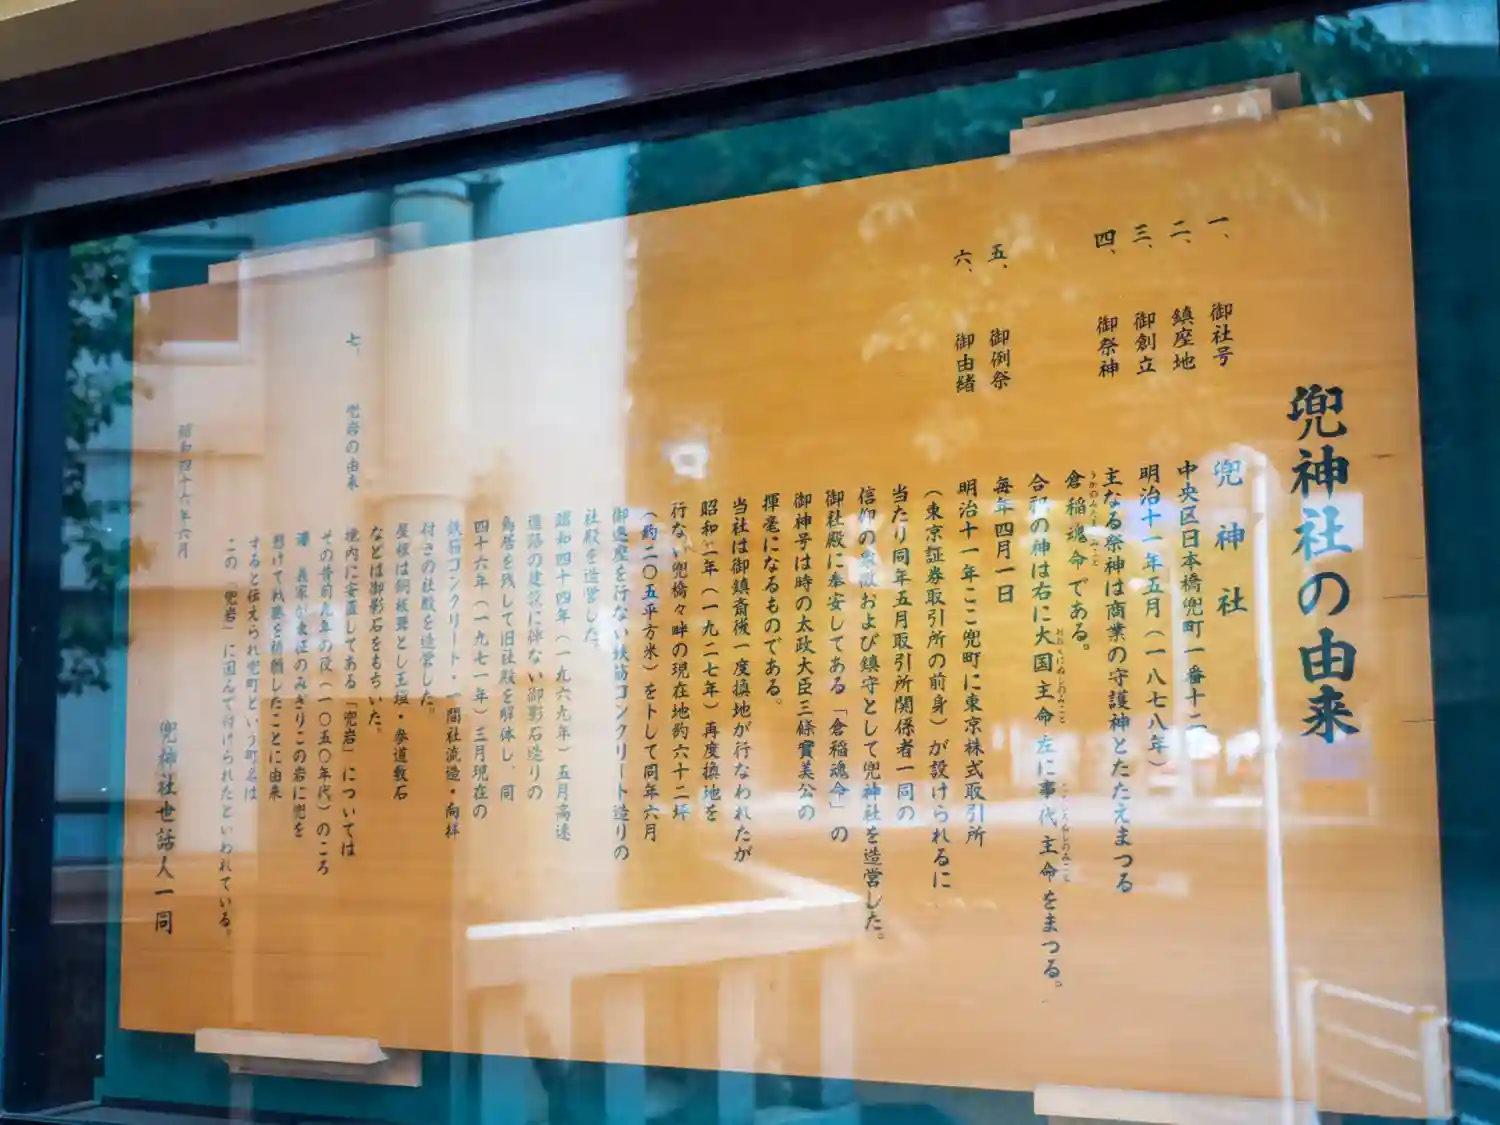 兜神社の由来
一、 御社号 兜神社
二、 鎮座地 中央区日本橋兜町一番十二
三、 御創立 明治十一年五月（一八七八年）
四、 御祭神 主なる祭神は商業の守護神とたたえまつる
倉稲魂命である。
合祀の神は右に大国主命左に事代主命をまつる。
五、 御例祭 毎年四月一日
六、 御由緒 明治十一年ここ兜町に東京株式取引所
（東京証券取引所の前身）が設けられるに
当たり同年五月取引所関係者一同の
信仰の象徴および鎮守として兜神社を造営した。
御社殿に奉安してある「倉稲魂命」の
御神号は時の太政大臣三條實美公の
揮毫になるものである。
当社は御鎮斎後一度換地が行なわれたが
昭和二年（一九二七年）再度換地を
行ない兜橋々畔の現在地約六十二坪
（約二〇五平方米）を卜して同年六月
御遷座を行ない鉄筋コンクリート造りの
社殿を造営した。
昭和四十四年（一九六九年）五月高速
道路の建設に伴ない御影石造りの
鳥居を残して旧社殿を解体し、同
四十六年（一九七一年）三月現在の
鉄筋コンクリート・一間社流造・向拝
付きの社殿を造営した。
屋根は銅板葺とし玉垣・参道敷石
などは御影石をもちいた。
七、 兜岩の由来 境内に安置してある「兜岩」については
その昔前九年の役（一〇五〇年代）のころ
源 義家が東征のみぎりこの岩に兜を
懸けて戦勝を祈願したことに由来
すると伝えられ兜町という町名は
この「兜岩」に因んで付けられたといわれている。
昭和四十六年六月
兜神社世話人一同